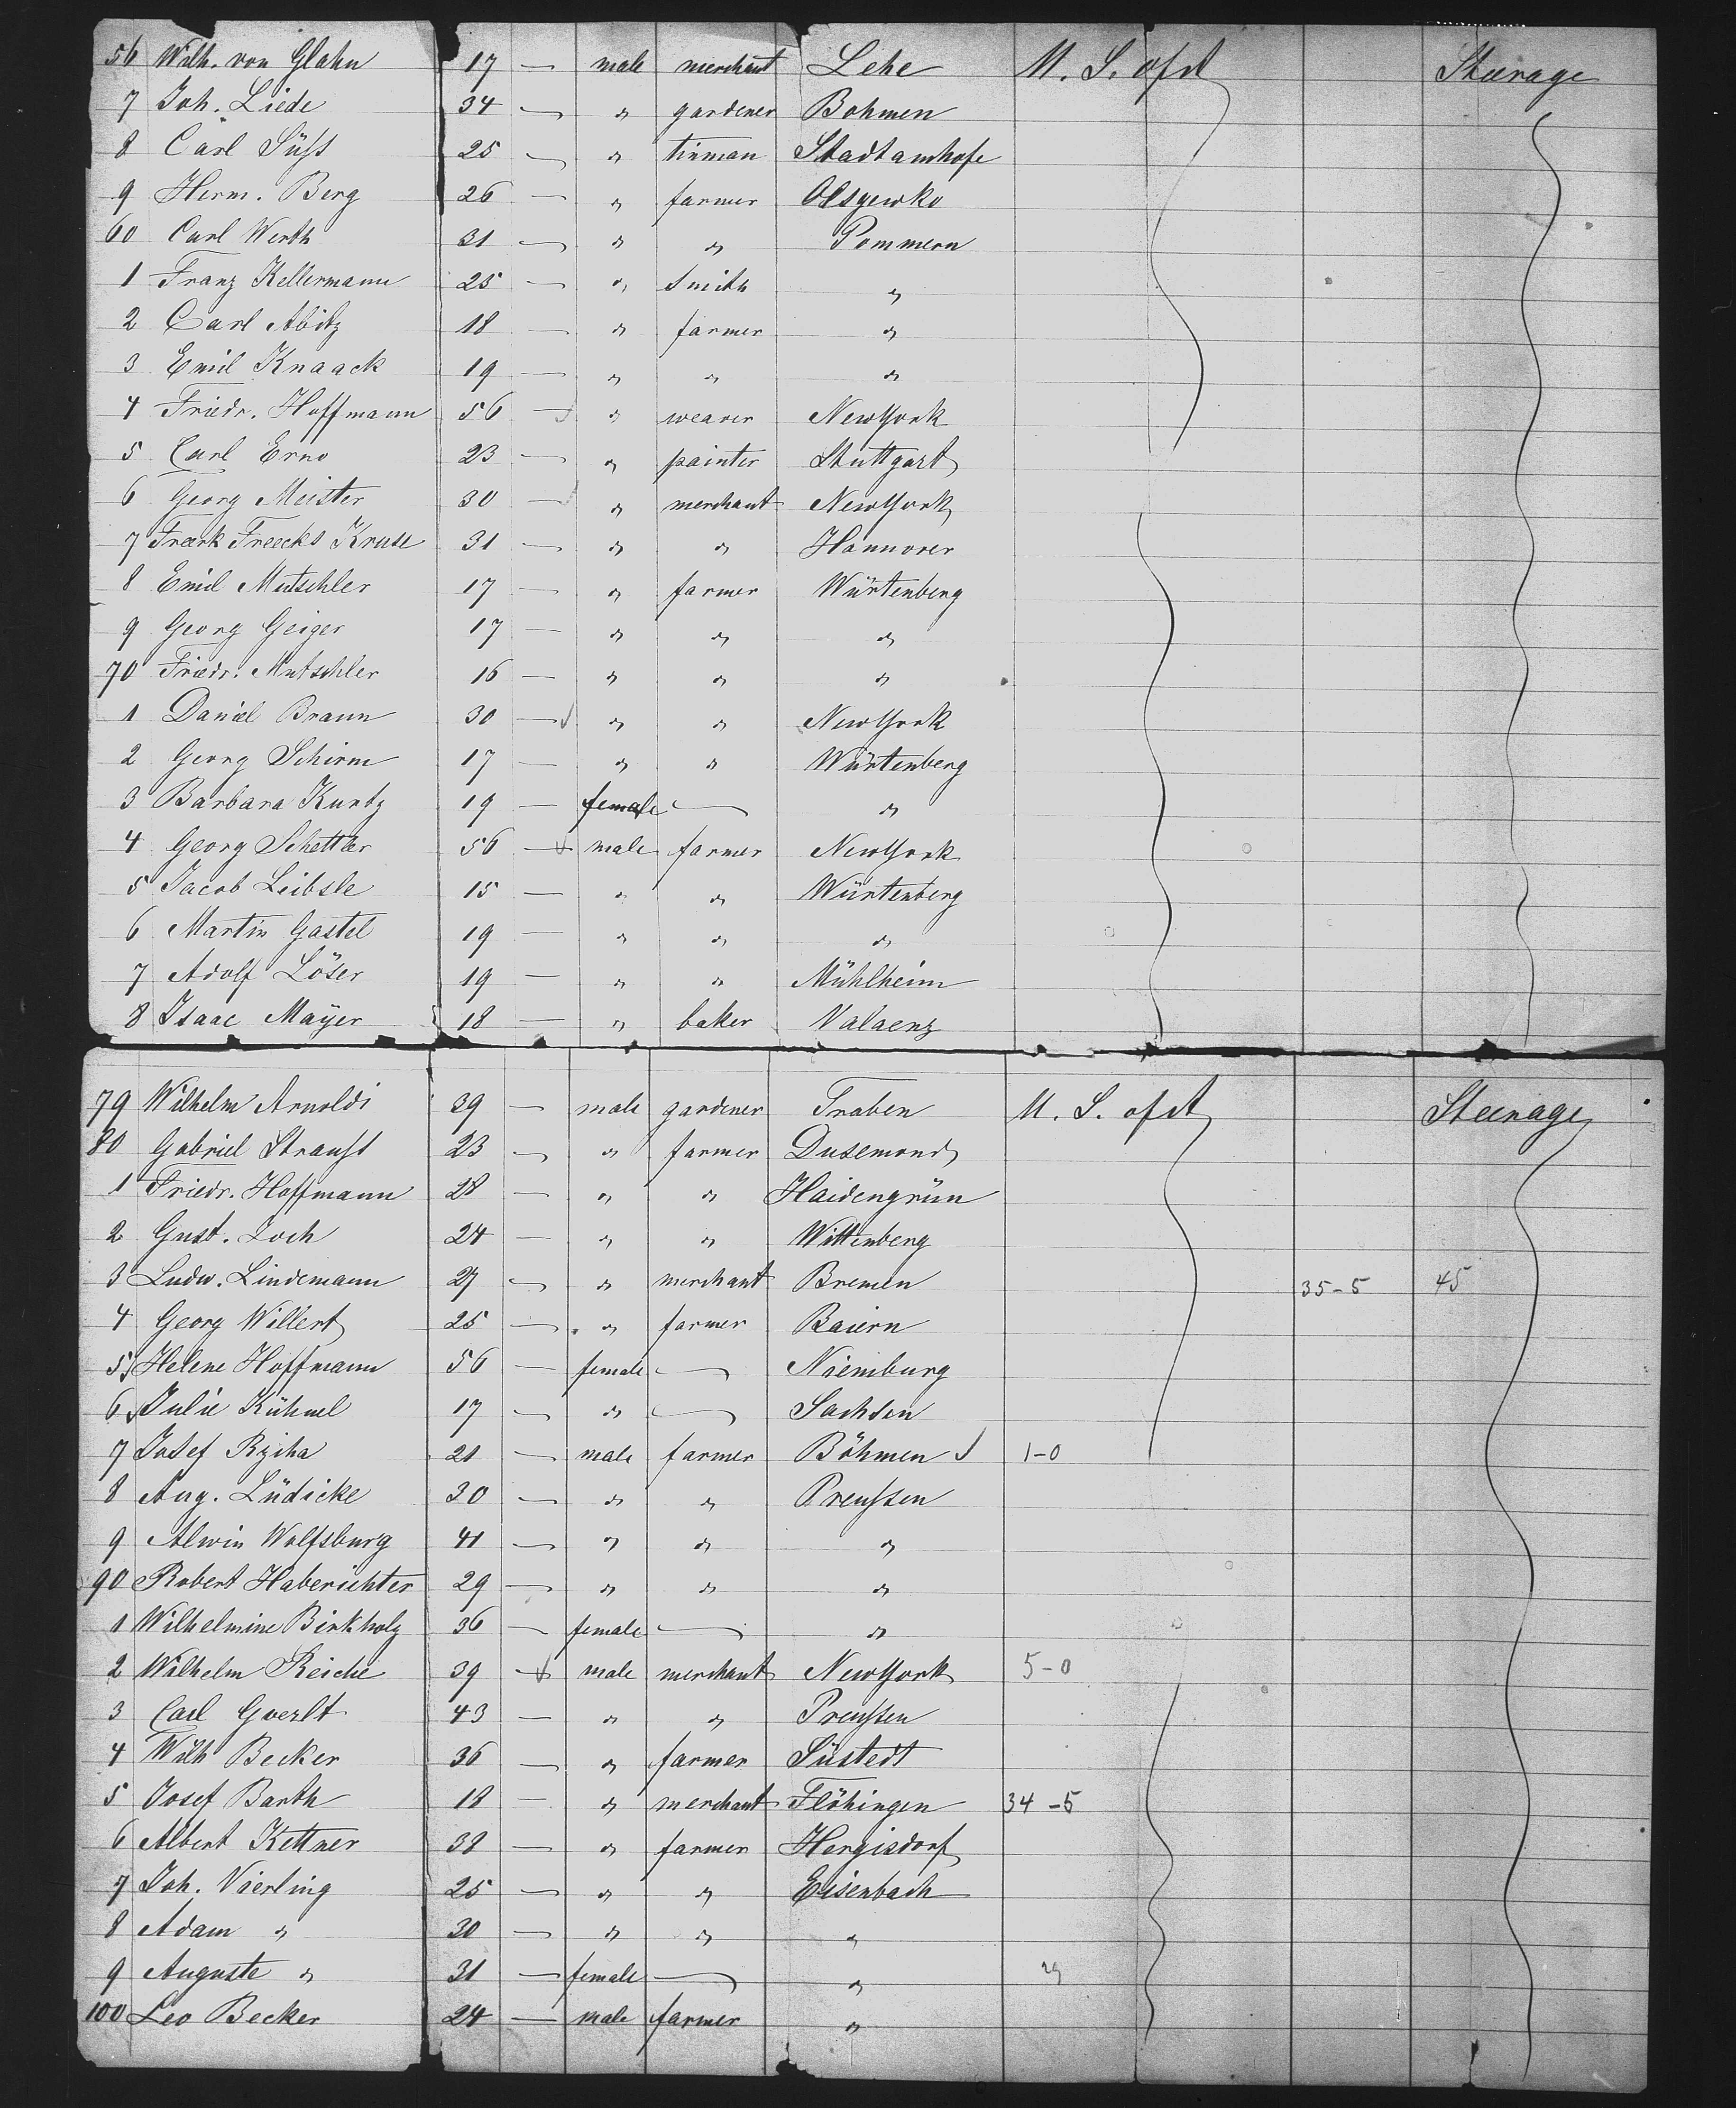 56 Wilh. von Glahn 17 — male merchant Lehe U. S. of A Steerage
7 Joh. Liede 34 — " gardener Bohmen
8 Carl Süss 25 — " tinman Stadtamhofe
9 Herm. Berg 26 — " farmer
60 Carl Werth 31 — " " Pommern
1 Franz Kellermann 25 — " Smith "
2 Carl Abitz 18 — " farmer "
3 Emil Knaack 19 — " " "
4 Friedr. Hoffmann 56 — " weaver NewYork
5 Carl Erno 23 — " painter Stuttgart
6 Georg Meister 30 — " merchant NewYork
7 Freerk Freecks Kruse 31 — " " Hannover
8 Emil Mutschler 17 — " farmer Würtenberg
9 Georg Geiger 17 — " " "
70 Friedr. Mutschler 16 — " " "
1 Daniel Braun 30 — " " NewYork
2 Georg Schirm 17 — " " Würtenberg
3 Barbara Kuntz 19 — female — "
4 Georg Schettler 56 — male farmer NewYork
5 Jacob Leibsle 15 — " " Würtenberg
6 Martin Gastel 19 — " " "
7 Adolf Löser 19 — " " Mühlheim
8 Isaac Mayer 18 — " baker Valaenz
79 Wilhelm Arnoldi 39 — male gardener Traben U. S. of A Steerage
80 Gabriel Strauss 23 — " farmer Dusemond
1 Friedr. Hoffmann 28 — " " Haidengrün
2 Gust. Loch 24 — " " Wittenberg
3 Ludw. Lindemann 27 — " merchant Bremen 35-5 45
4 Georg Willert 25 — " farmer Baiern
5 Helene Hoffmann 56 — female — Niemburg
6 Julie Kühnel 17 — " — Sachsen
7 Josef Rziha 21 — male farmer Böhmen 1-0
8 Aug. Lüdicke 30 — " " Preussen
9 Alwin Wolfsburg 41 — " " "
90 Robert Haberichter 29 — " " "
1 Wilhelmine Birkholz 36 — female — "
2 Wilhelm Reiche 39 — male merchant NewYork 5-0
3 Carl Goerlt 43 — " " Preussen
4 Wilh Becker 36 — " farmer Süstedt
5 Josef Barth 18 — " merchant Flöhingen 34-5
6 Albert Kettner 38 — " farmer Hergisdorf
7 Joh. Vierling 25 — " " Eisenbach
8 Adam " 30 — " " "
9 Auguste " 31 — female — "
100 Leo Becker 24 — male farmer "